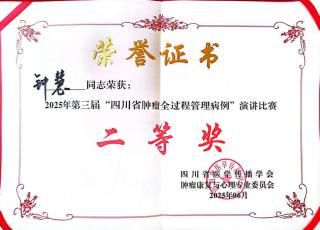 荣誉证书
钟慧 同志荣获：
2025年第三届“四川省肿瘤全过程管理病例”演讲比赛
二等奖
四川省医学传播学会
肿瘤康复与心理专业委员会
2025年06月